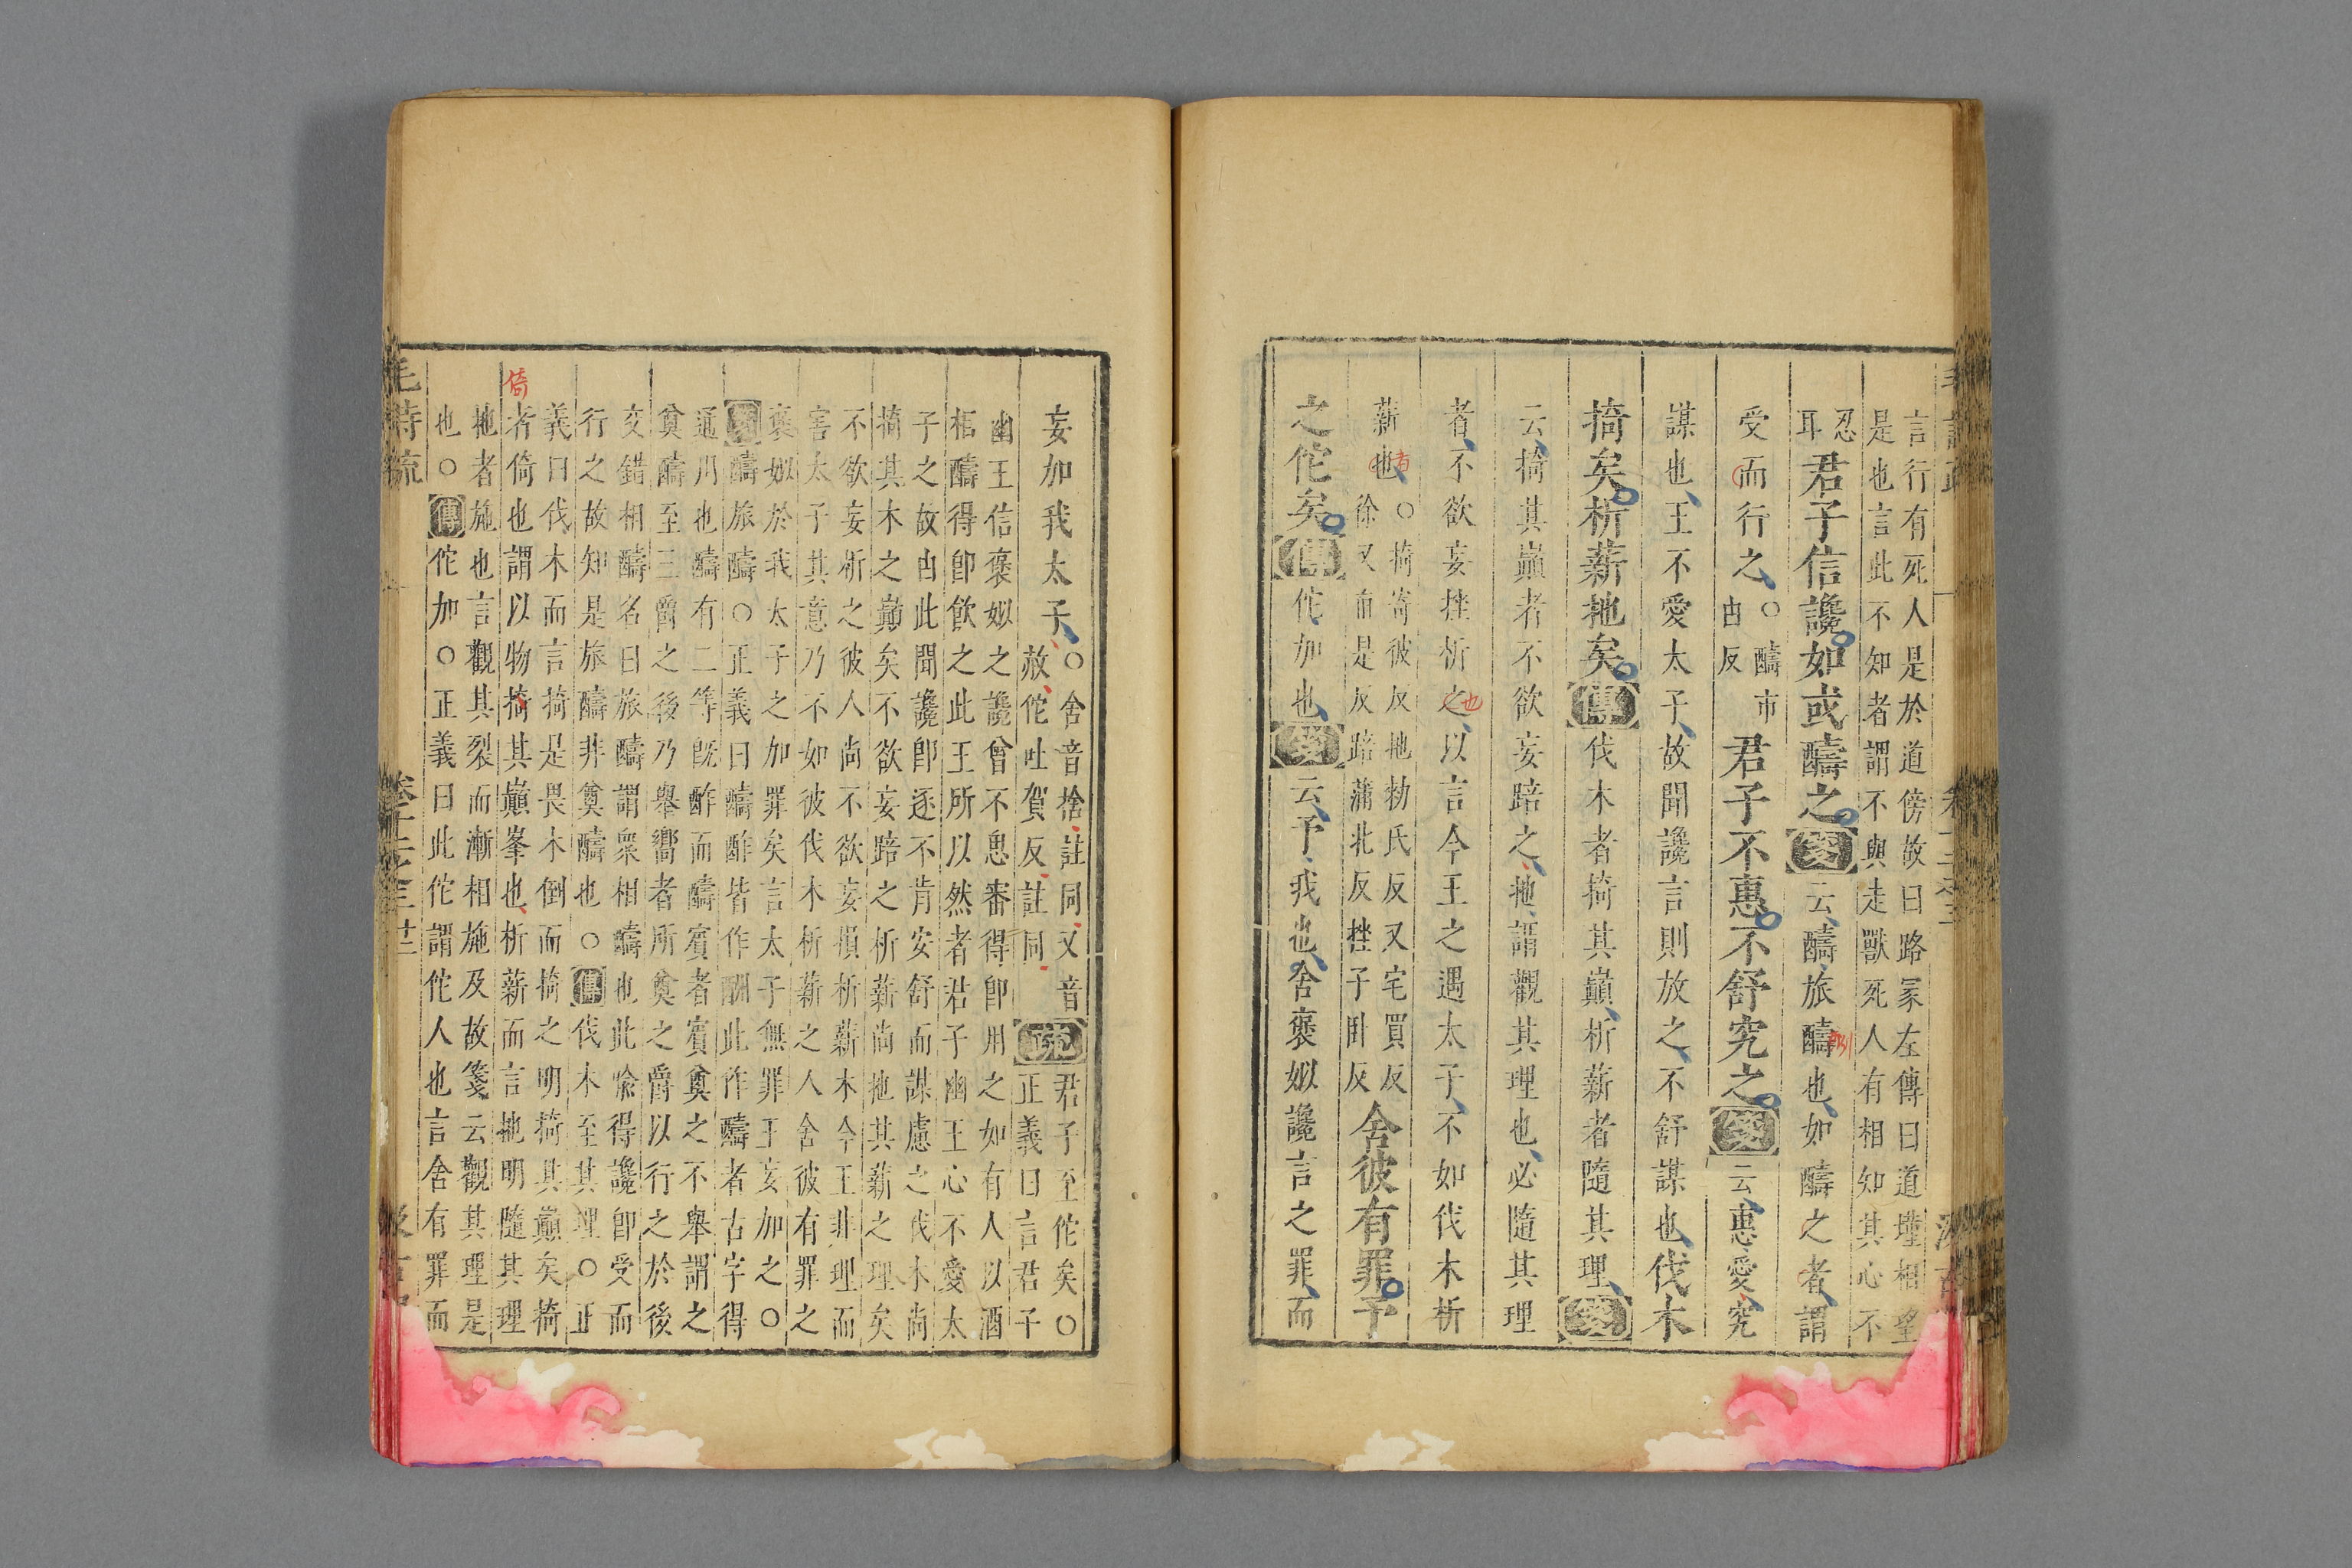 言行有死人是於道傍故曰路冢左傳曰道墐相望
是也言此不知者謂不與走獸死人有相知其心不
忍
耳
君子信讒如或醻之箋云醻旅醻也如醻之者謂
酬
受而行之○醻市
由反
君子不惠不舒究之箋云惠愛究
謀也王不愛太子故聞讒言則放之不舒謀也伐木
掎矣析薪杝矣傳伐木者掎其巔析薪者隨其理箋
云掎其巔者不欲妄踣之杝謂觀其理也必隨其理
者不欲妄挫析之以言今王之遇太子不如伐木析
也
薪也
者
○掎寄彼反杝勑氏反又宅買反
徐又直是反踣蒲北反挫子臥反
舍彼有罪予
之佗矣傳佗加也箋云予我也舍褒姒讒言之罪而
妄加我太子
○舍音捨註同又音
赦佗吐賀反註同
疏
君子至佗矣○
正義曰言君子
幽王信褒姒之讒曾不思審得卽用之如有人以酒
柜醻得卽飮之此王所以然者君子幽王心不愛太
子之故由此聞讒卽逐不肯安舒而謀慮之伐木尚
掎其木之巔矣不欲妄踣之析薪尚杝其薪之理矣
不欲妄析之彼人尚不欲妄損析薪木今王非理而
害太子其意乃不如彼伐木析薪之人舍彼有罪之
褒姒於我太子之加罪矣言太子無罪王妄加之○
箋醻旅醻○正義曰醻酢皆作酬此作醻者古字得
通用也醻有二等旣酢而醻賓者賓奠之不舉謂之
奠醻至三爵之後乃舉嚮者所奠之爵以行之於後
交錯相醻名曰旅醻謂衆相醻也此喩得讒卽受而
行之故知是旅醻非奠醻也○傳伐木至其理○正
義曰伐木而言掎是畏木倒而掎之明掎其巔矣掎
者倚也謂以物掎其巔峯也析薪而言杝明隨其理
倚
杝者施也言觀其裂而漸相施及故箋云觀其理是
也○傳佗加○正義曰此佗謂佗人也言舍有罪而
毛詩疏
卷十二之三 廿二